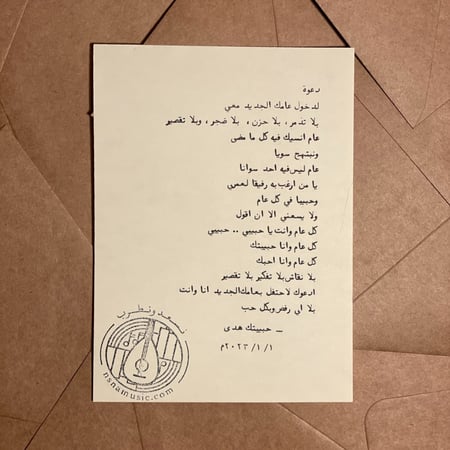 دعوة
لدخول عامك الجديد معي
بلا تذمر، بلا حزن، بلا ضجر، وبلا تقصير
عام انسيك فيه كل ما مضى
ونبتهج سويا
عام ليس فيه احد سوانا
يا من ارغب به رفيقا لعمري
وحبيبا في كل عام
ولا يسعني الا ان اقول
كل عام وانت يا حبيبي .. حبيبي
كل عام وانا حبيبتك
كل عام وانا احبك
بلا نقاش بلا تفكير بلا تقصير
ادعوك لاحتفل بعامك الجديد انا وانت
بلا اي رفض وبكل حب
ــ حبيبتك هدى
٢٠٢٣/١/١م
نسعد ونطرب
nsnamusic.com